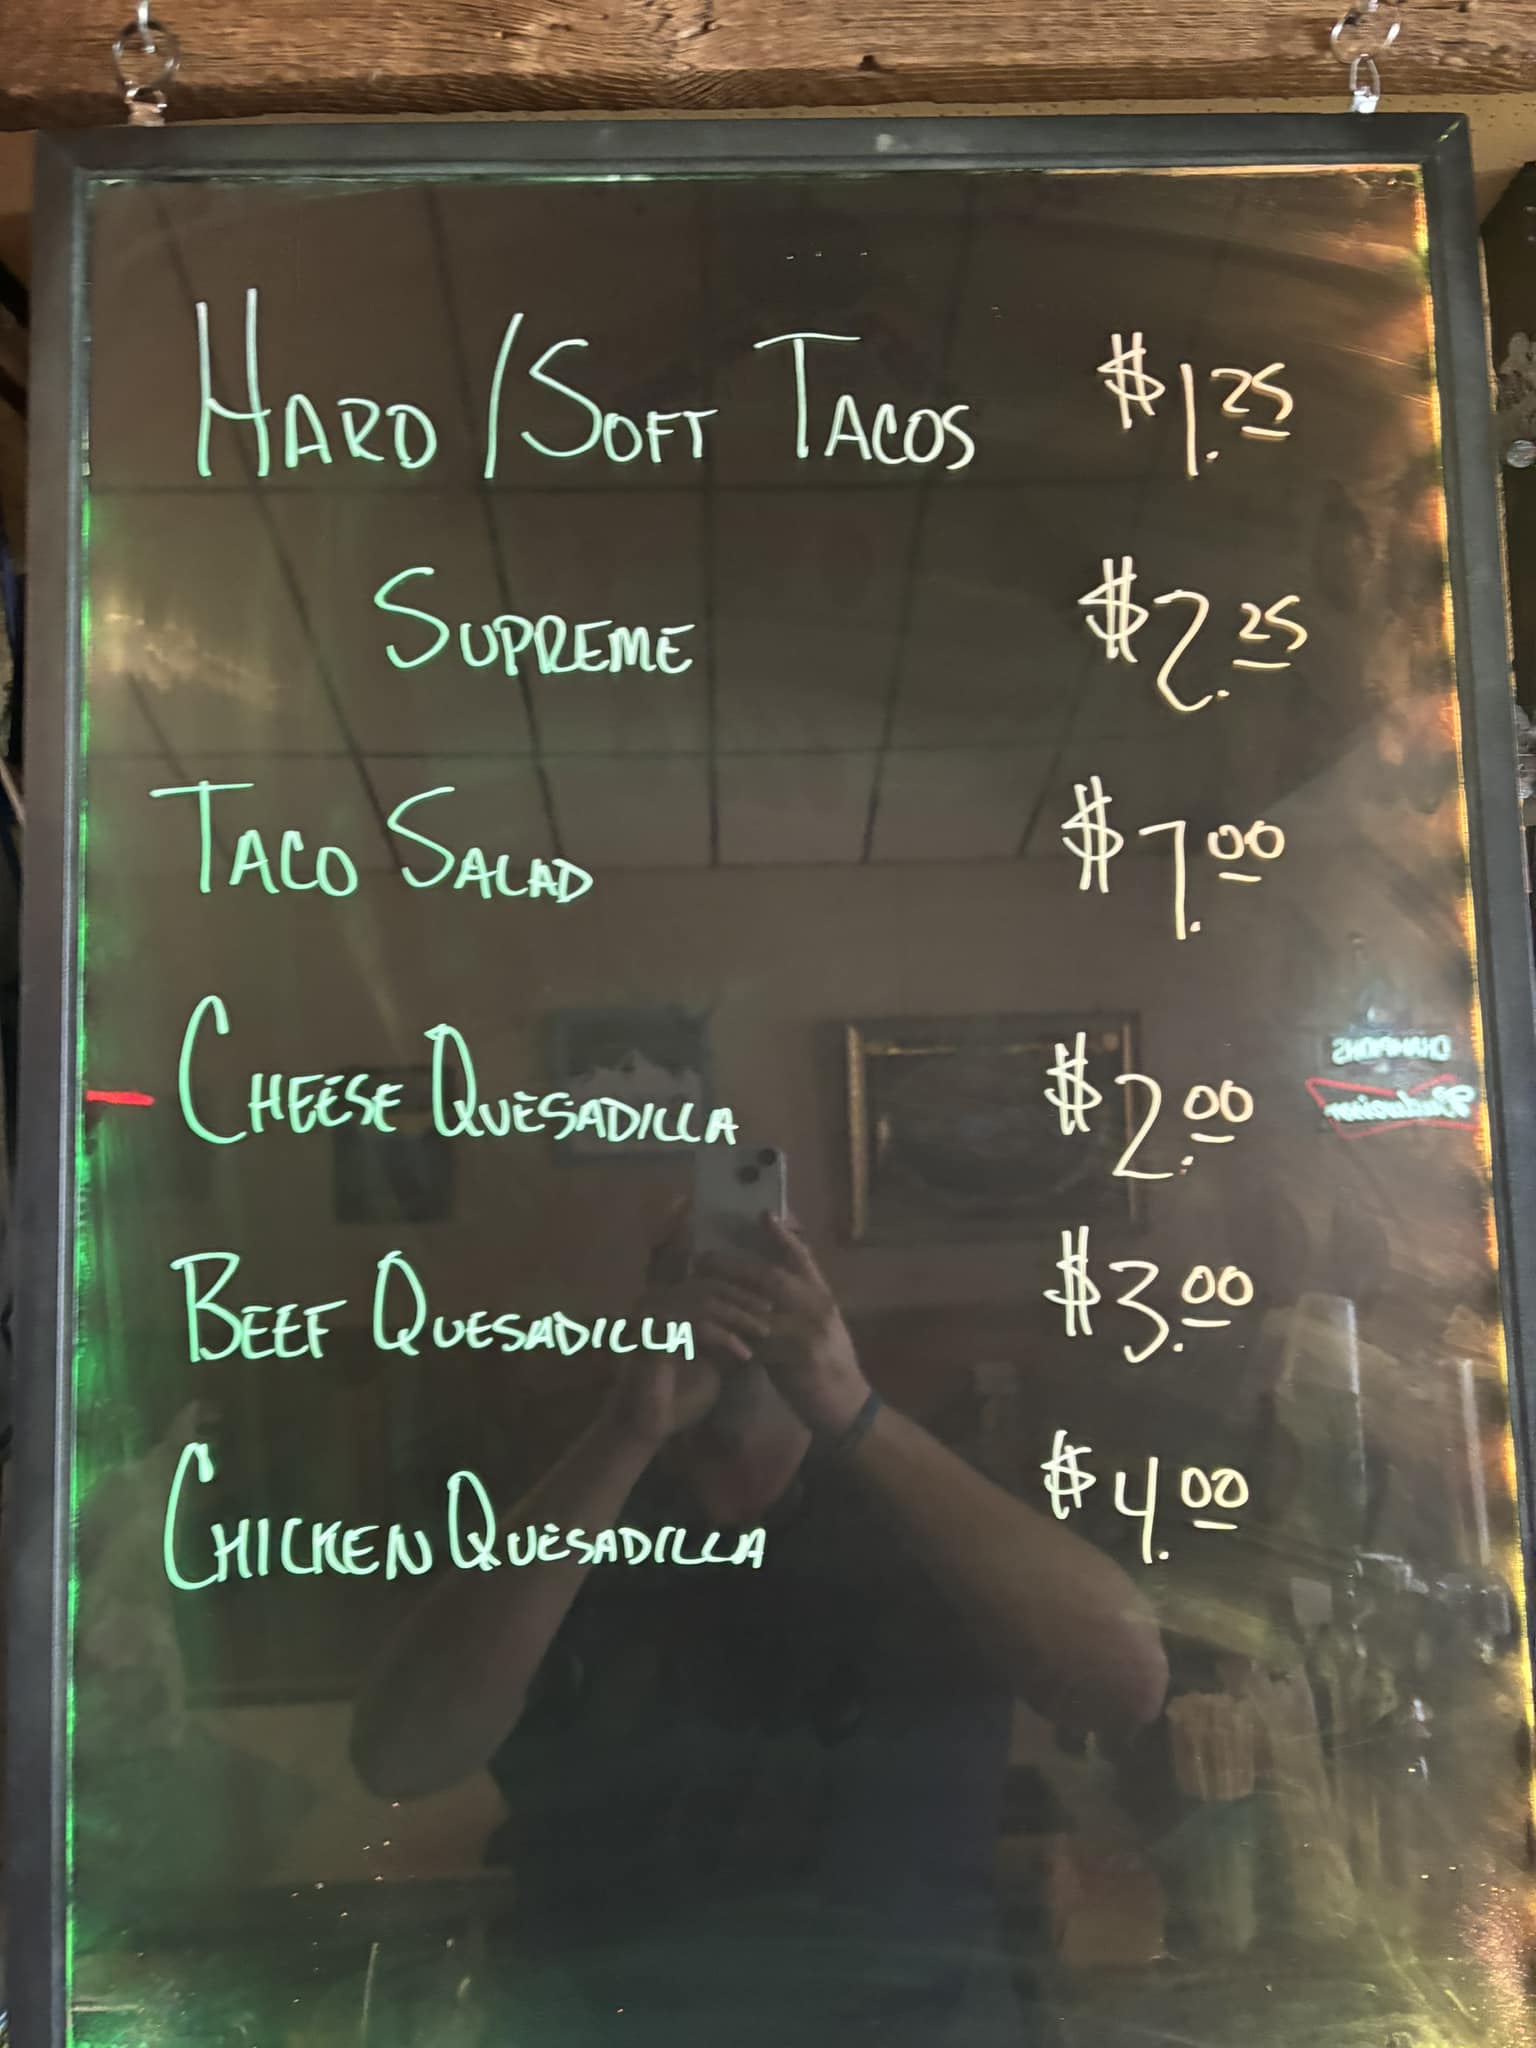 HARD / SOFT TACOS $1.25
SUPREME $2.25
TACO SALAD $7.00
CHEESE QUESADILLA $2.00
BEEF QUESADILLA $3.00
CHICKEN QUESADILLA $4.00
CHAMPIONS
Budweiser